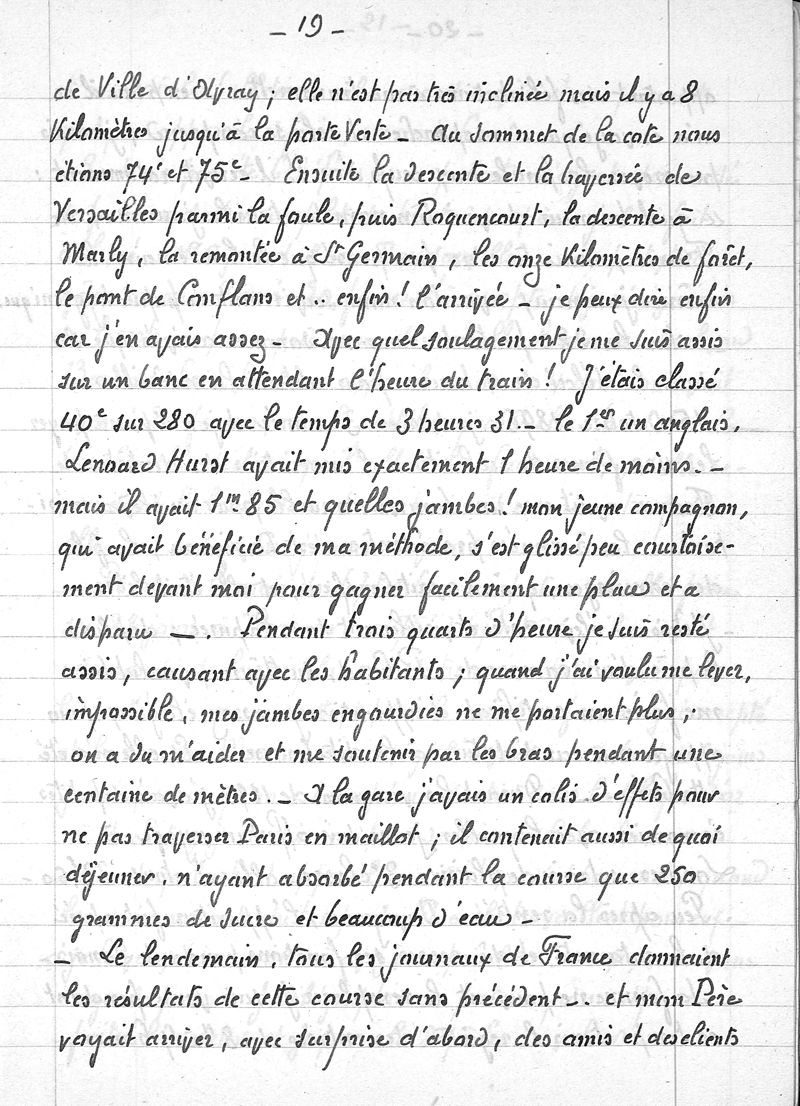 - 19 -
de Ville d'Avray ; elle n'est pas très inclinée mais il y a 8
Kilomètres jusqu'à la porte Verte - Au sommet de la cote nous
étions 74e et 75e - Ensuite la descente et la traversée de
Versailles parmi la foule, puis Roquencourt, la descente à
Marly, la remontée à St Germain, les onze Kilomètres de forêt,
le pont de Conflans et .. enfin ! l'arrivée - je peux dire enfin
car j'en avais assez - Avec quel soulagement je me suis assis
sur un banc en attendant l'heure du train ! J'étais classé
40e sur 280 avec le temps de 3 heures 31. - le 1er un anglais,
Lenoard Hurst avait mis exactement 1 heure de moins. -
mais il avait 1m 85 et quelles jambes ! mon jeune compagnon,
qui avait bénéficié de ma méthode, s'est glissé peu courtoise-
ment devant moi pour gagner facilement une place et a
disparu - . Pendant trois quarts d'heure je suis resté
assis, causant avec les habitants ; quand j'ai voulu me lever,
impossible, mes jambes engourdies ne me portaient plus ;
on a du m'aider et me soutenir par les bras pendant une
centaine de mètres. - A la gare j'avais un colis d'effets pour
ne pas traverser Paris en maillot ; il contenait aussi de quoi
déjeuner, n'ayant absorbé pendant la course que 250
grammes de sucre et beaucoup d'eau -
- Le lendemain, tous les journaux de France donnaient
les résultats de cette course sans précédent - . et mon Père
voyait arriver, avec surprise d'abord, des amis et des clients